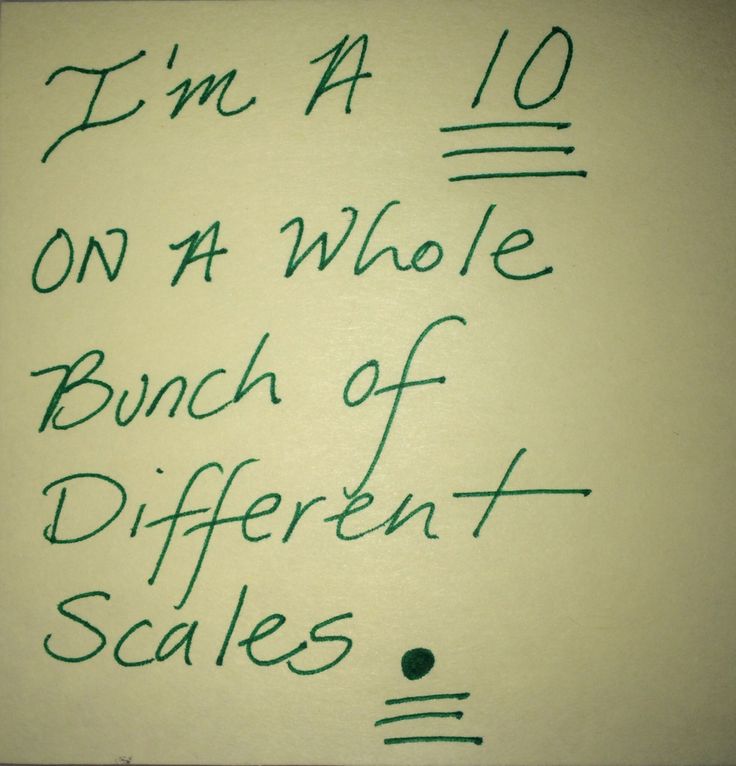 I'm A 10
ON A Whole
Bunch of
Different
Scales.